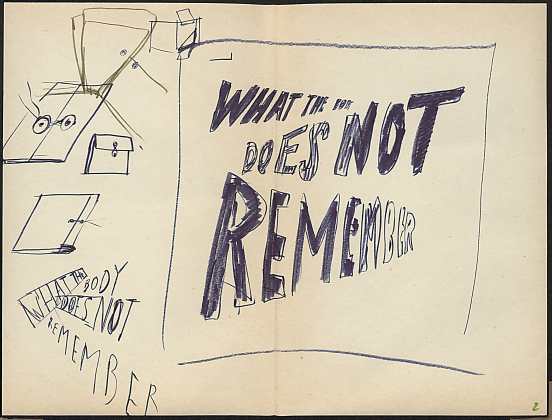 WHAT THE
DOES NOT
REMEMBER
WHAT THE BODY
DOES NOT
REMEMBER
2